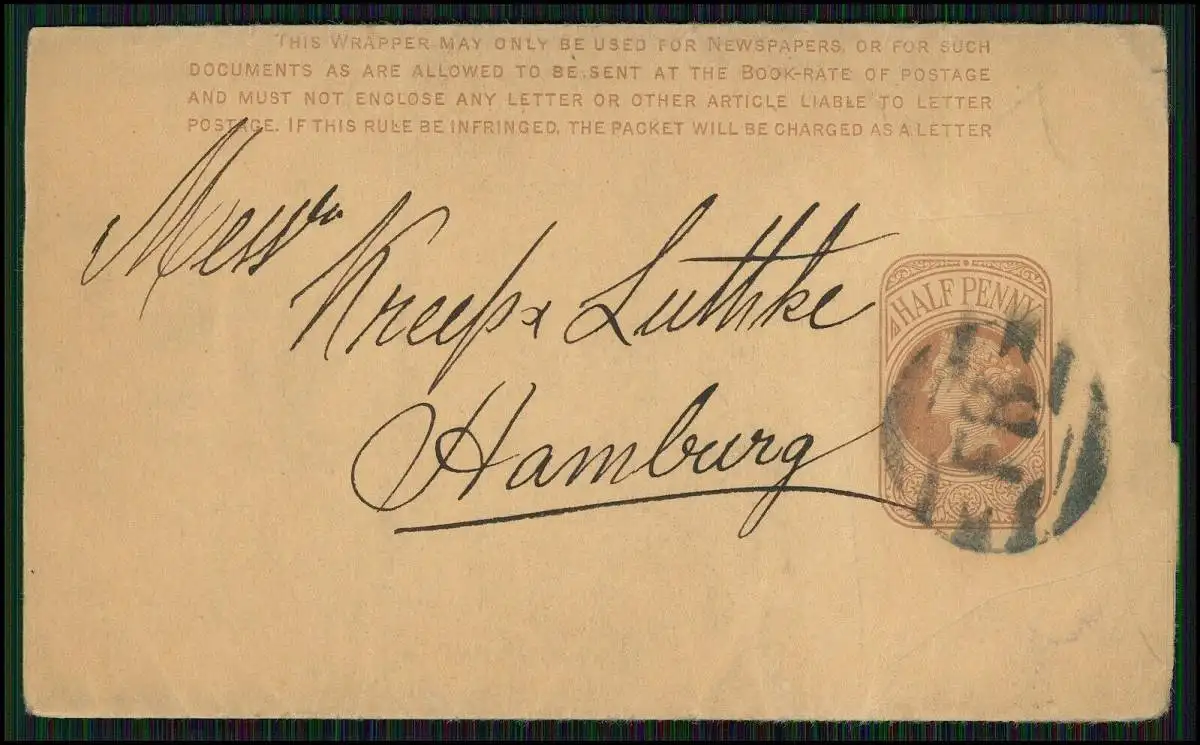 THIS WRAPPER MAY ONLY BE USED FOR NEWSPAPERS, OR FOR SUCH
DOCUMENTS AS ARE ALLOWED TO BE SENT AT THE BOOK-RATE OF POSTAGE
AND MUST NOT ENCLOSE ANY LETTER OR OTHER ARTICLE LIABLE TO LETTER
POSTAGE. IF THIS RULE BE INFRINGED, THE PACKET WILL BE CHARGED AS A LETTER
Messrs.
Kreeps & Luthke
Hamburg
HALF PENNY
FB